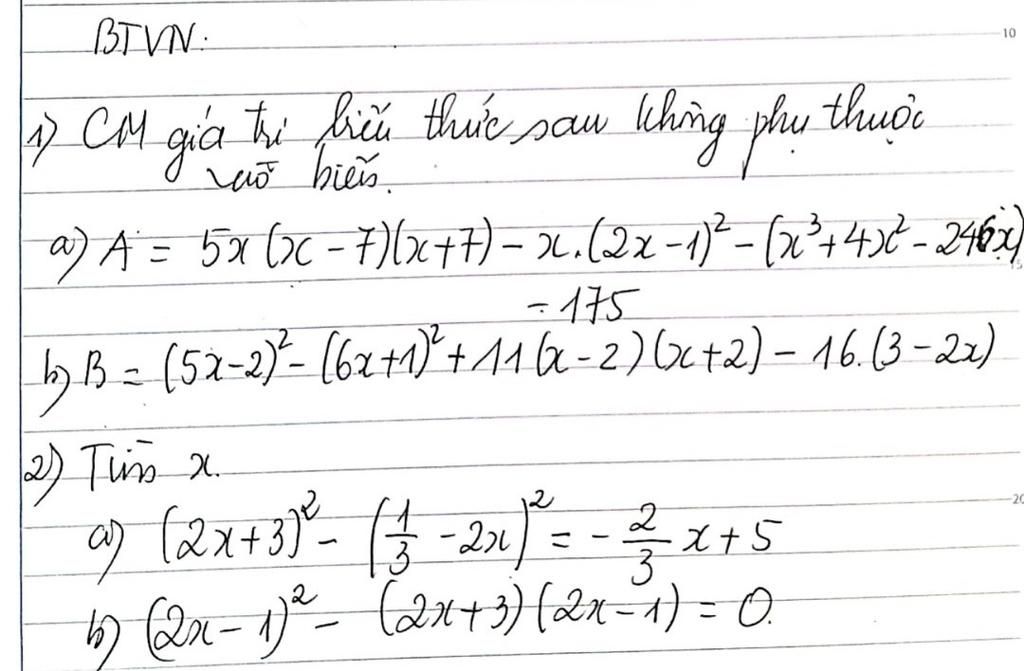 BTVN:
10
1) CM giá trị biểu thức sau không phụ thuộc
vào biến.
a) A = 5x(x-7)(x+7) - x.(2x-1)² - (x³+4x²-246x)
- 175
b) B = (5x-2)² - (6x+1)² + 11(x-2)(x+2) - 16.(3-2x)
2) Tìm x.
20
a) (2x+3)² - (1/3 - 2x)² = -2/3 x + 5
b) (2x-1)² - (2x+3)(2x-1) = 0.